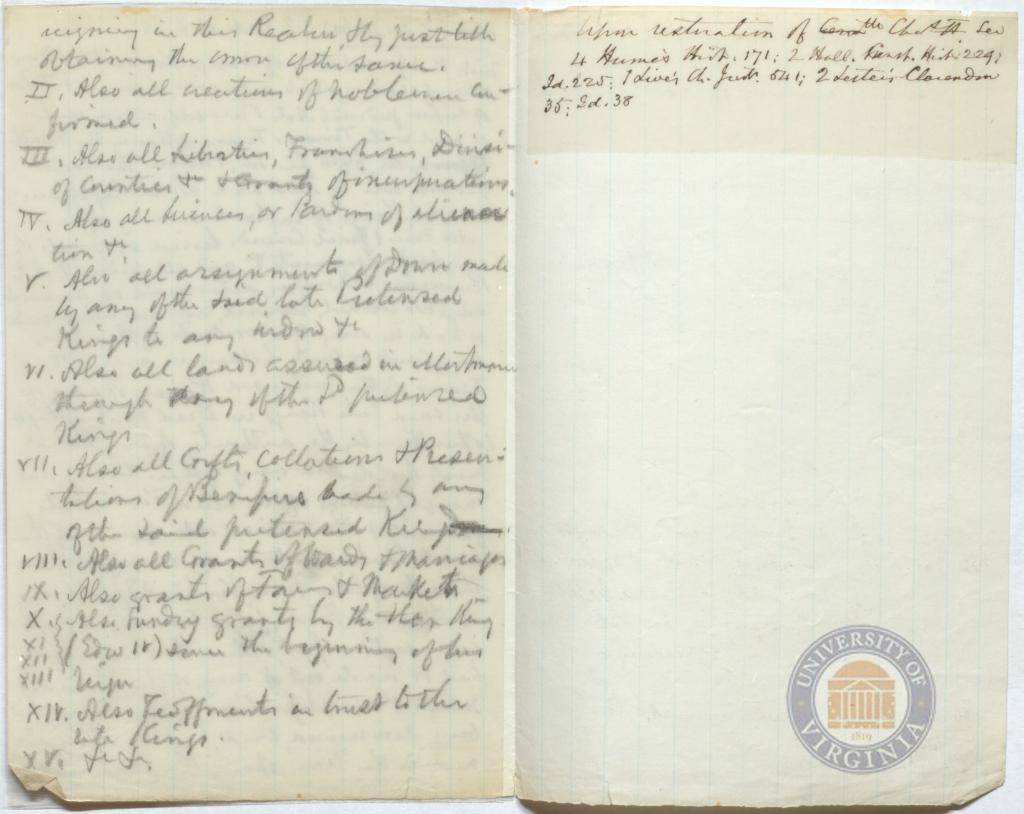 reigning in this Realm, by just title
obtaining the crown of the same.
II. Also all creations of noblemen con-
firmed.
III. Also all Liberties, Franchises, Divisi-
of Counties &c & Grants of incorporations.
IV. Also all Licences, or Pardons of aliena-
tion &c.
V. Also all assignments of Dower made
by any of the said late Pretensed
Kings to any widow &c
VI. Also all lands assured in Mortmain
through any of the sd pretensed
Kings
VII. Also all Gifts, Collations & Presen-
tations of Benefices made by any
of the said pretensed Kings
VIII. Also all Grants of Wards & Marriages
IX. Also grants of Fairs & Markets
X. Also Sundry grants by the then King
XI
XII (Edw IV) since the beginning of his
XIII reign
XIV. Also Feoffments in trust to the
late Kings.
XV. &c &c.
Upon restoration of Chas II. See
4 Hume's Hist. 171; 2 Hall. Hist. 229;
Id. 225; 1 Ch. Just. 541; 2 Lister's Clarendon
35; Id. 38
UNIVERSITY OF VIRGINIA
1819